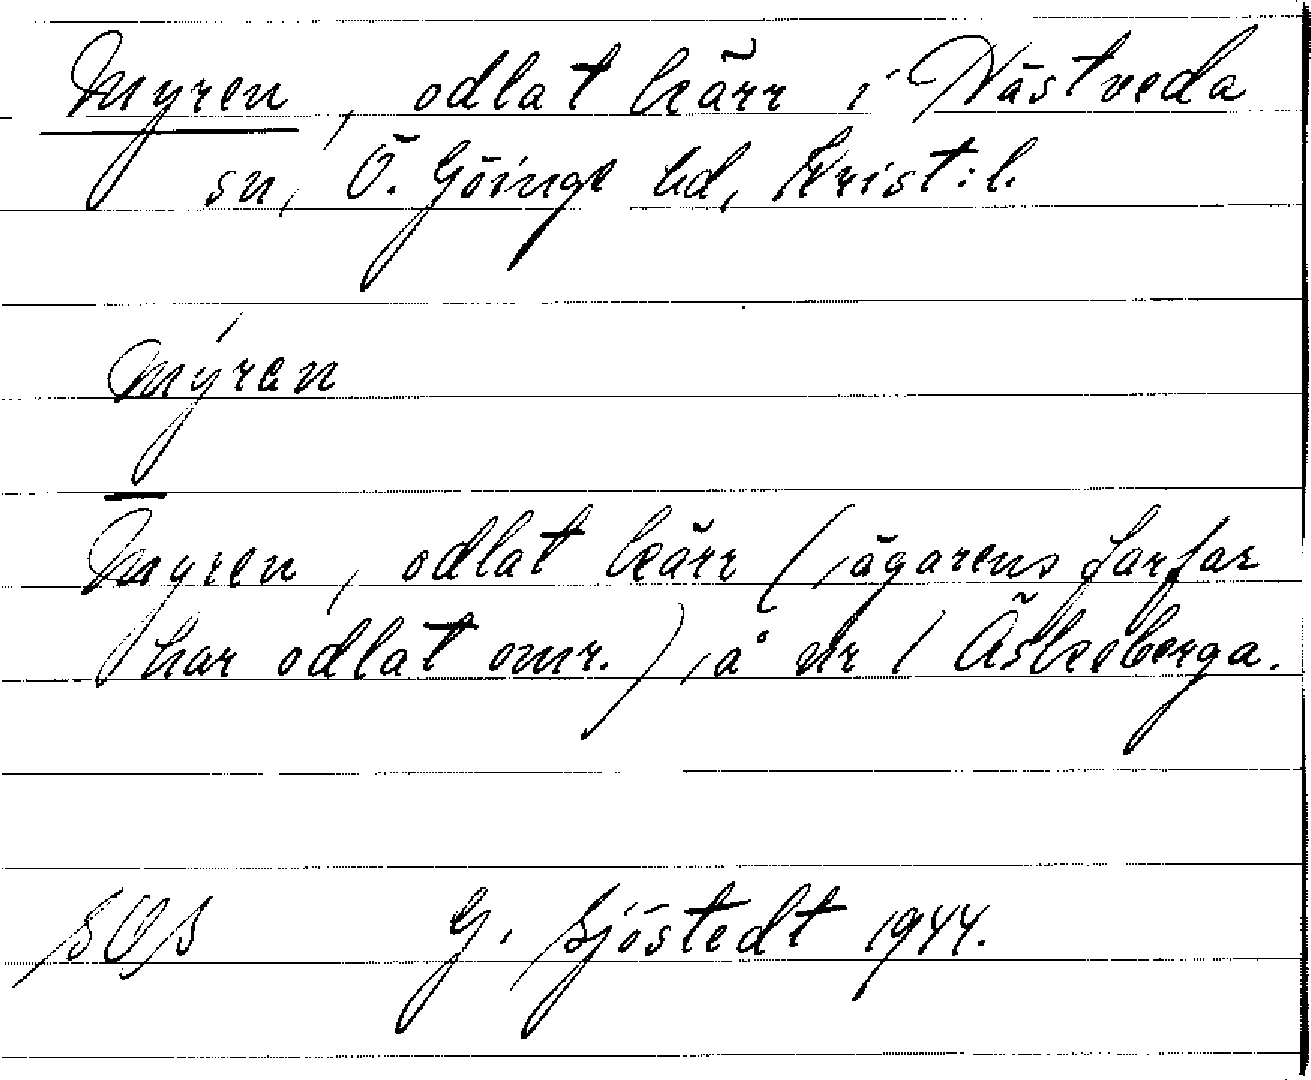 Myren, odlat kärr i Västveda
sn, Ö. Göinge hd, Krist:l.
mýran
Myren, odlat kärr (ägarens farfar
har odlat omr.), å nr 1 Äskeberga.
SOS G. Sjöstedt 1944.